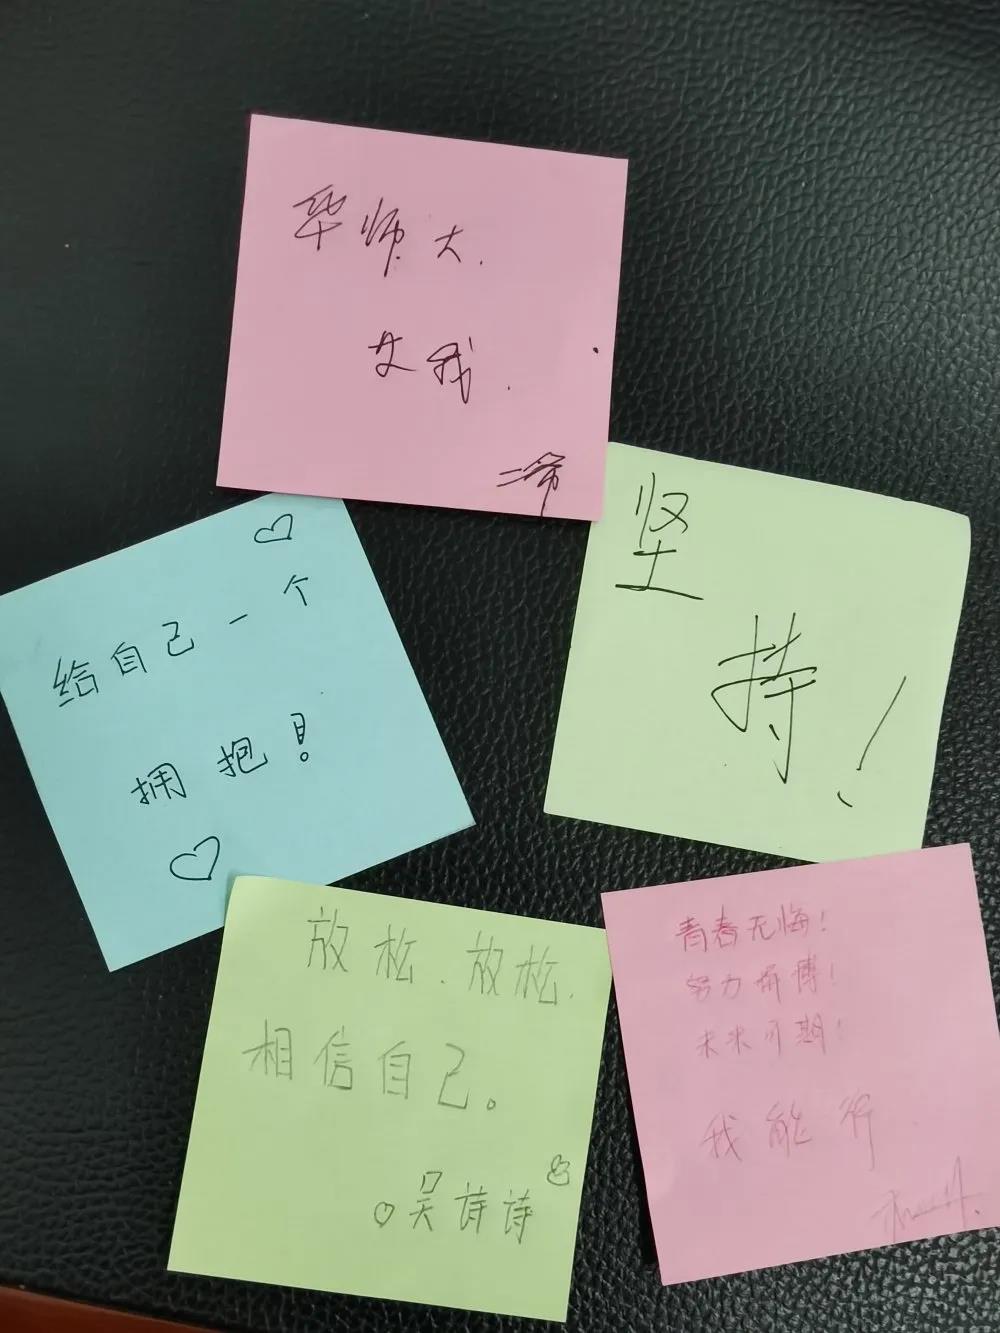 华师大.
给自己一个
拥抱！
坚
持！
放松、放松.
相信自己。
吴诗诗
青春无悔！
努力拼博！
未来可期！
我能行